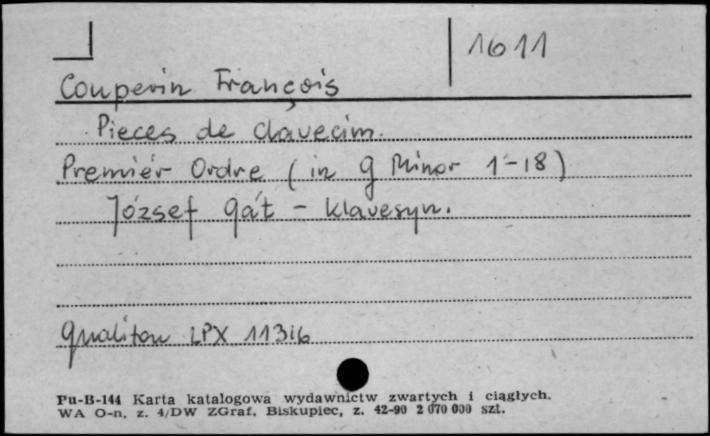 1611
Couperin François
Pieces de clavecim.
Premiér Ordre (in g Minor 1-18)
József Gát - klavesyn.
Qualiton LPX 11316
Pu-B-144 Karta katalogowa wydawnictw zwartych i ciągłych.
WA O-n, z. 4/DW ZGraf. Biskupiec, z. 42-90 2 070 000 szt.